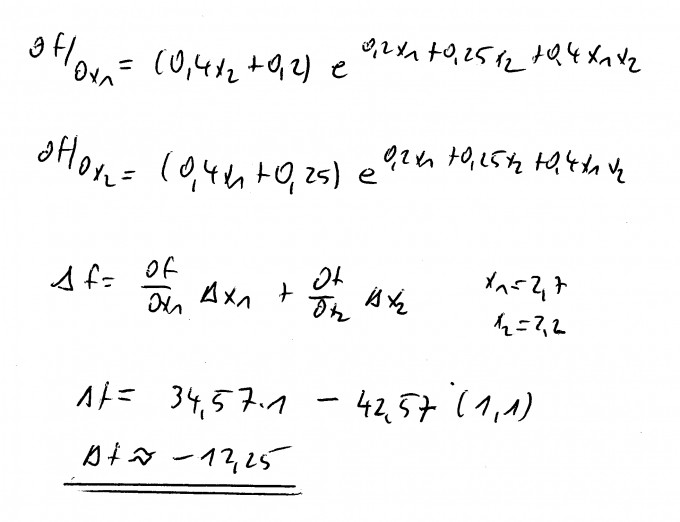 ∂f/∂x₁ = (0,4x₂ + 0,2) e^(0,2x₁ + 0,25x₂ + 0,4x₁x₂)
∂f/∂x₂ = (0,4x₁ + 0,25) e^(0,2x₁ + 0,25x₂ + 0,4x₁x₂)
Δf = ∂f/∂x₁ Δx₁ + ∂f/∂x₂ Δx₂ x₁ = 2,7
x₂ = 2,2
Δf = 34,57·1 − 42,57·(1,1)
Δf ≈ −12,25